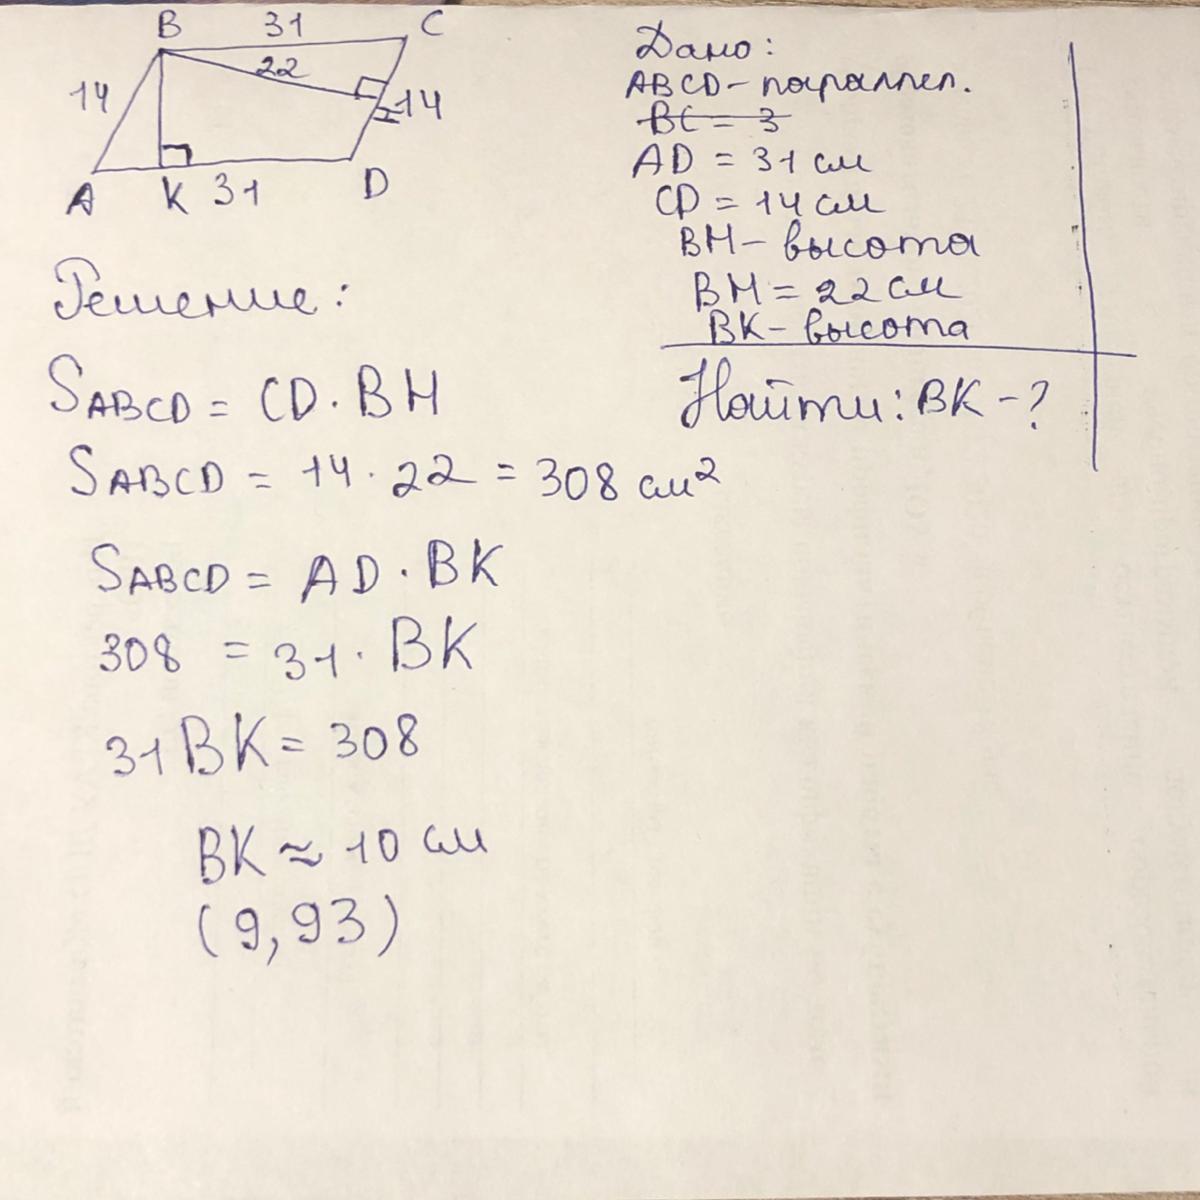 B 31 C
22
14
14
H
A K 31 D
Дано:
ABCD - параллел.
BC = 3
AD = 31 см
CD = 14 см
BH - высота
BH = 22 см
BK - высота
Найти: BK - ?
Решение:
SABCD = CD · BH
SABCD = 14 · 22 = 308 см²
SABCD = AD · BK
308 = 31 · BK
31 BK = 308
BK ≈ 10 см
(9,93)